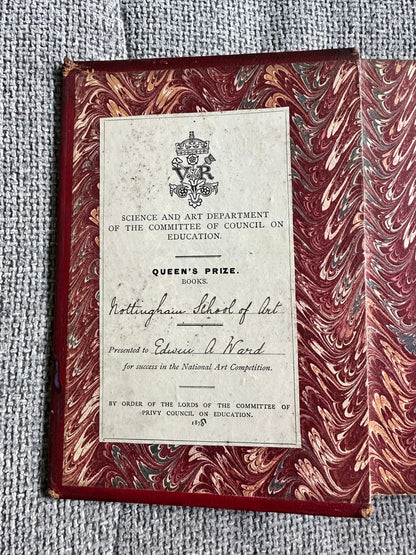 V R
SCIENCE AND ART DEPARTMENT
OF THE COMMITTEE OF COUNCIL ON
EDUCATION.
QUEEN'S PRIZE.
BOOKS.
Nottingham School of Art
Presented to Edwin A Ward
for success in the National Art Competition.
BY ORDER OF THE LORDS OF THE COMMITTEE OF
PRIVY COUNCIL ON EDUCATION.